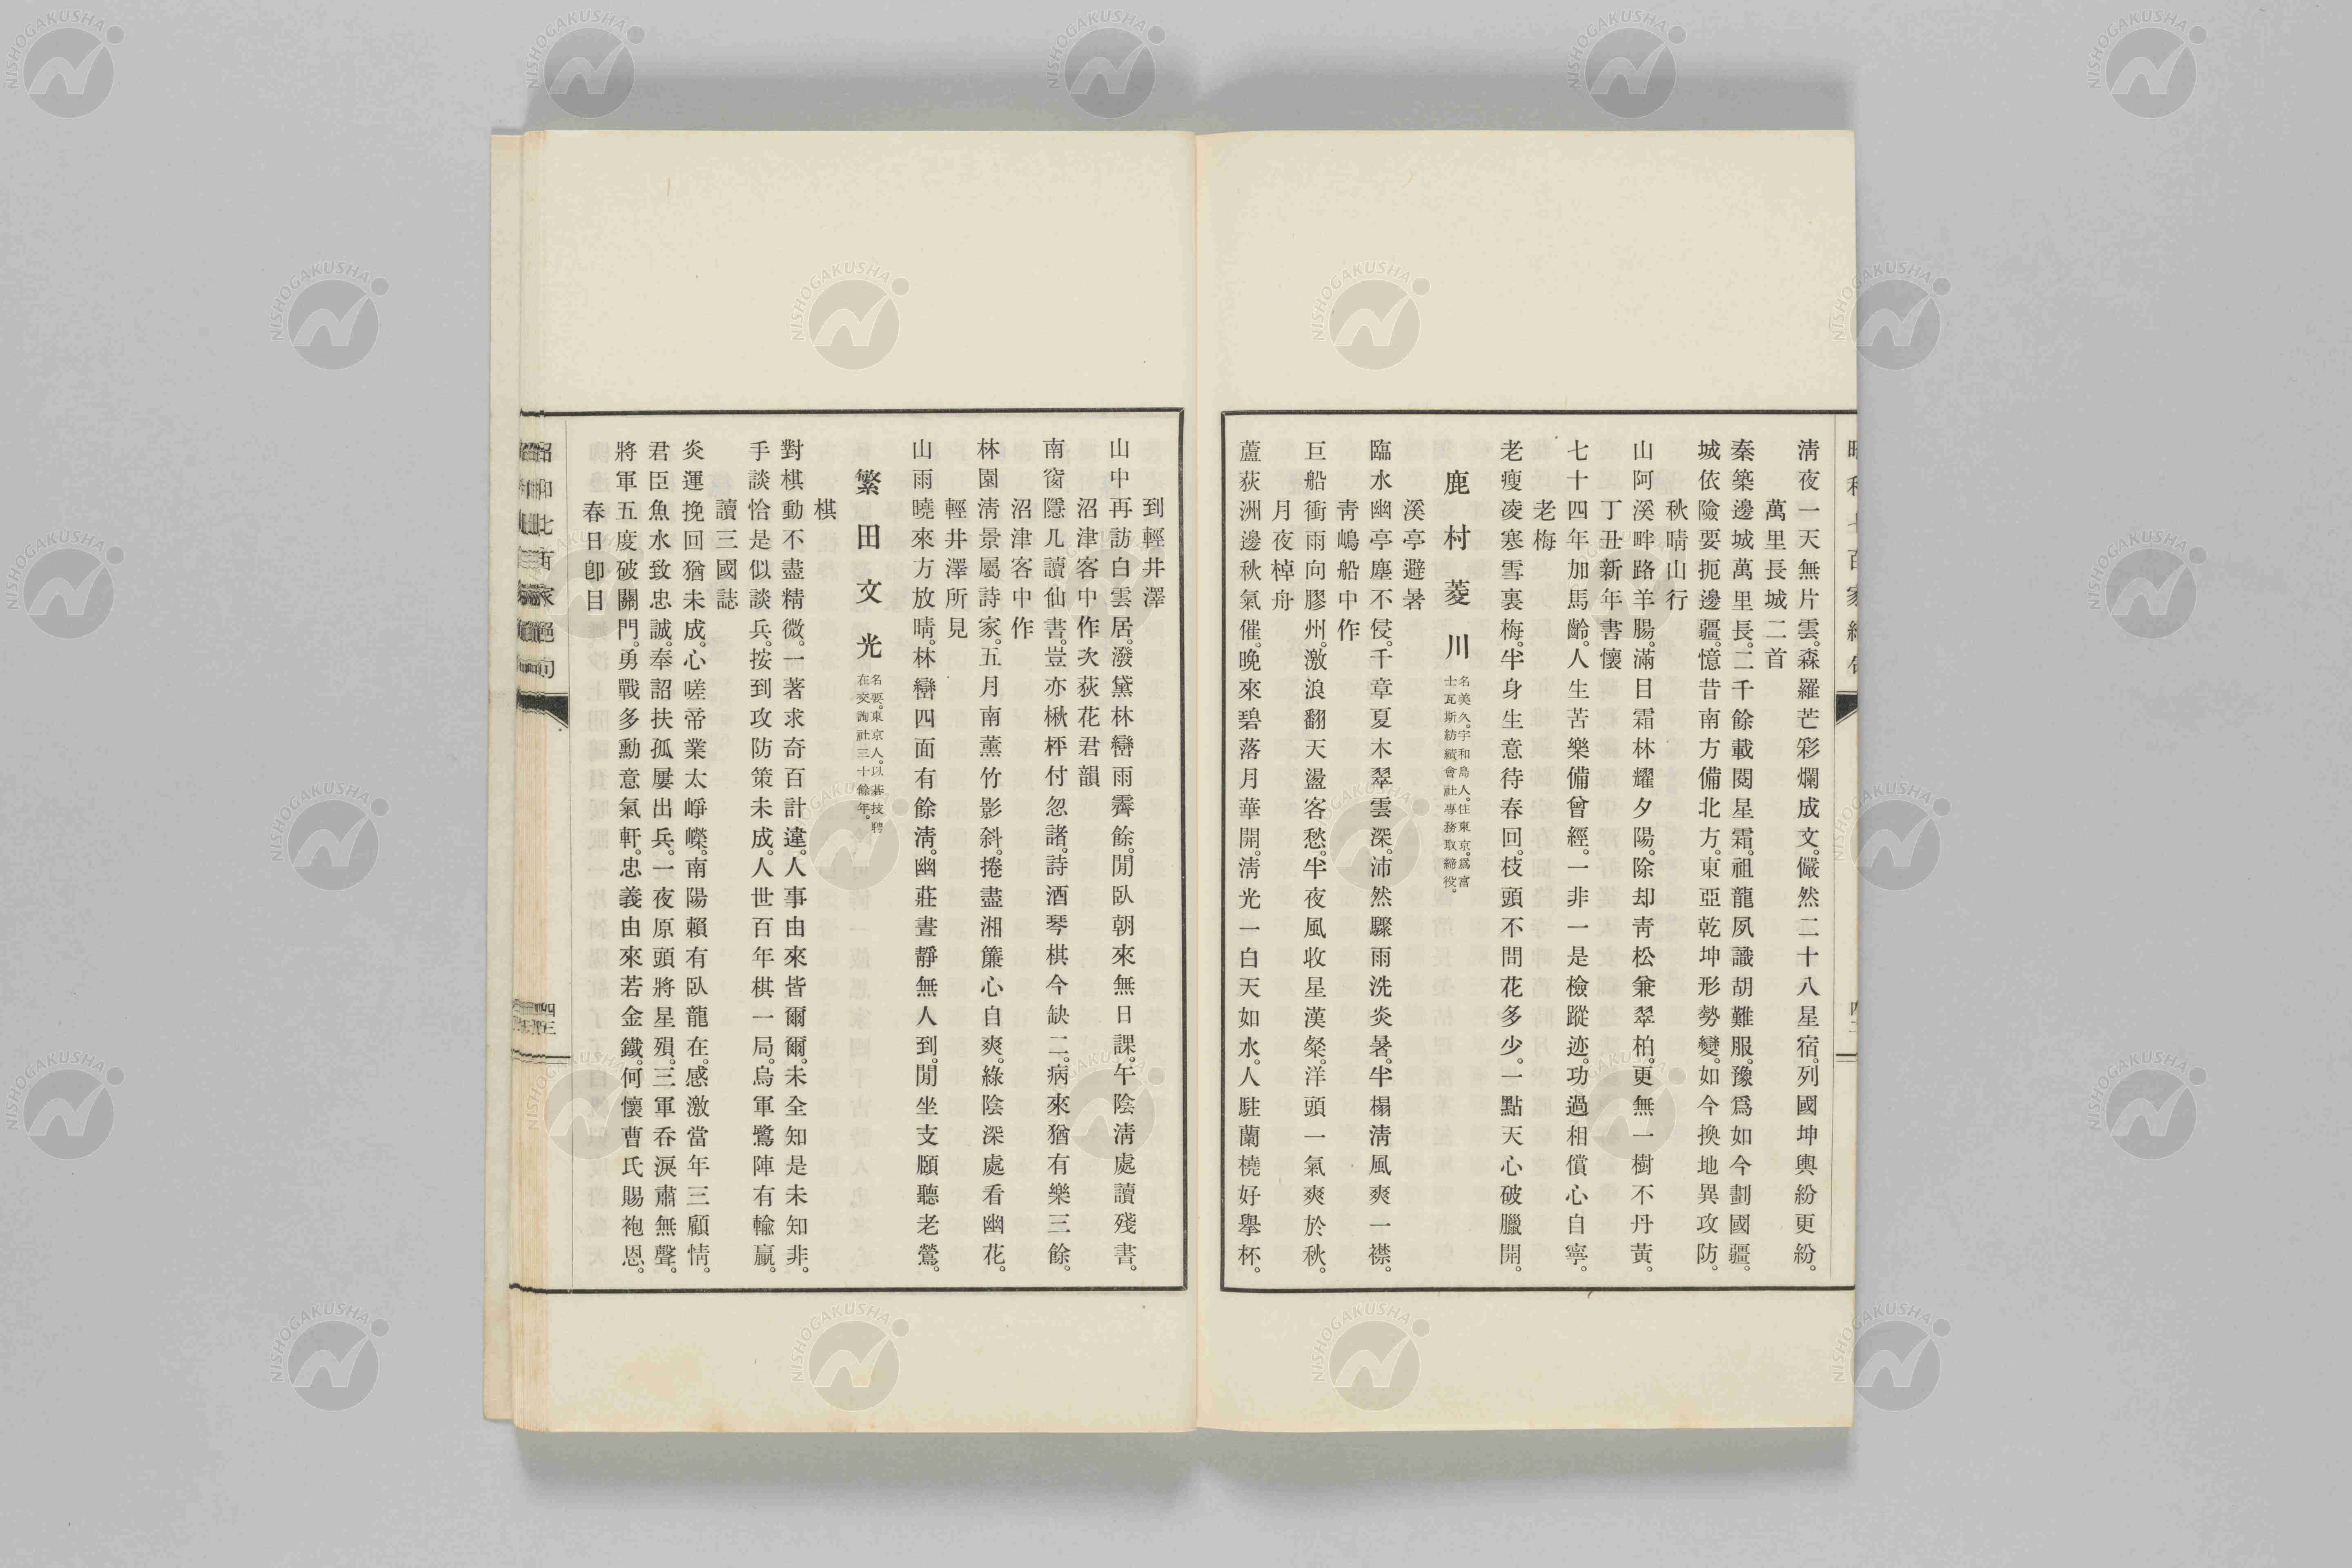 清夜一天無片雲。森羅芒彩爛成文。儼然二十八星宿。列國坤輿紛更紛。
萬里長城二首
秦築邊城萬里長。二千餘載閱星霜。祖龍夙識胡難服。豫爲如今劃國疆。
城依險要扼邊疆。憶昔南方備北方。東亞乾坤形勢變。如今換地異攻防。
秋晴山行
山阿溪畔路羊腸。滿目霜林耀夕陽。除却靑松兼翠柏。更無一樹不丹黃。
丁丑新年書懷
七十四年加馬齡。人生苦樂備曾經。一非一是檢蹤迹。功過相償心自寧。
老梅
老瘦凌寒雪裏梅。半身生意待春回。枝頭不問花多少。一點天心破臘開。
鹿村菱川
名美久。字和鳥人。住東京。爲富
士瓦斯紡績會社專務取締役。
溪亭避暑
臨水幽亭塵不侵。千章夏木翠雲深。沛然驟雨洗炎暑。半榻淸風爽一襟。
靑嶋船中作
巨船衝雨向膠州。激浪翻天盪客愁。半夜風收星漢粲。洋頭一氣爽於秋。
月夜棹舟
蘆荻洲邊秋氣催。晚來碧落月華開。淸光一白天如水。人駐蘭橈好擧杯。
到輕井澤
山中再訪白雲居。潑黛林巒雨霽餘。閒臥朝來無日課。午陰淸處讀殘書。
沼津客中作次荻花君韻
南窗隱几讀仙書。豈亦楸枰付忽諸。詩酒琴棋今缺二。病來猶有樂三餘。
沼津客中作
林園淸景屬詩家。五月南薰竹影斜。捲盡湘簾心自爽。綠陰深處看幽花。
輕井澤所見
山雨曉來方放晴。林巒四面有餘淸。幽莊晝靜無人到。閒坐支頤聽老鶯。
繁田文光
名要。東京人。以棊技聘
在交詢社三十餘年。
棋
對棋動不盡精微。一著求奇百計違。人事由來皆爾爾。未全知是未知非。
手談恰是似談兵。按到攻防策未成。人世百年棋一局。烏軍鷺陣有輸贏。
讀三國誌
炎運挽回猶未成。心嗟帝業太崢嶸。南陽賴有臥龍在。感激當年三顧情。
君臣魚水致忠誠。奉詔扶孤屢出兵。一夜原頭將星殞。三軍呑淚肅無聲。
將軍五度破關門。勇戰多勳意氣軒。忠義由來若金鐵。何懷曹氏賜袍恩。
春日卽目
昭和七百家絕句
四三
NISHOGAKUSHA